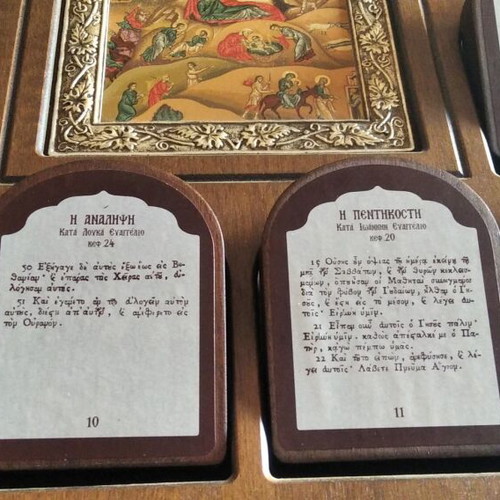 Η ΑΝΑΛΗΨΗ
ΚΑΤΑ ΛΟΥΚΑ ΕΥΑΓΓΕΛΙΟ
ΚΕΦ. 24
50 Ἐξήγαγε δὲ αὐτοὺς ἔξω ἕως εἰς Βη-
θανίαν· ἐπάρας τὰς Χεῖρας αὐτοῦ, εὐ-
λόγησεν αὐτούς.
51 Καὶ ἐγένετο ἐν τῷ εὐλογεῖν αὐτὸν
αὐτούς, διέστη ἀπ' αὐτῶν, ϗ ἀνεφέρετο εἰς
τὸν Οὐρανόν.
10
Η ΠΕΝΤΗΚΟΣΤΗ
ΚΑΤΑ ΙΩΑΝΝΗ ΕΥΑΓΓΕΛΙΟ
ΚΕΦ. 20
Οὔσης οὖν ὀψίας τῇ ἡμέρᾳ ἐκείνῃ τῇ
μιᾷ τῶν Σαββάτων, ϗ τῶν θυρῶν κεκλεισ-
μένων, ὅπου ἦσαν οἱ Μαθηταὶ συνηγμένοι
διὰ τὸν φόβον τῶν Ἰουδαίων, ἦλθεν ὁ Ἰη-
σοῦς, ϗ ἔστη εἰς τὸ μέσον, ϗ λέγει αὐ-
τοῖς· Εἰρήνη ὑμῖν.
21 Εἶπεν οὖν αὐτοῖς ὁ Ἰησοῦς πάλιν·
Εἰρήνη ὑμῖν. καθὼς ἀπέσταλκέ με ὁ Πα-
τήρ, κἀγὼ πέμπω ὑμᾶς.
22 Καὶ τοῦτο εἰπών, ἐνεφύσησε, ϗ λέ-
γει αὐτοῖς· Λάβετε Πνεῦμα Ἅγιον.
11